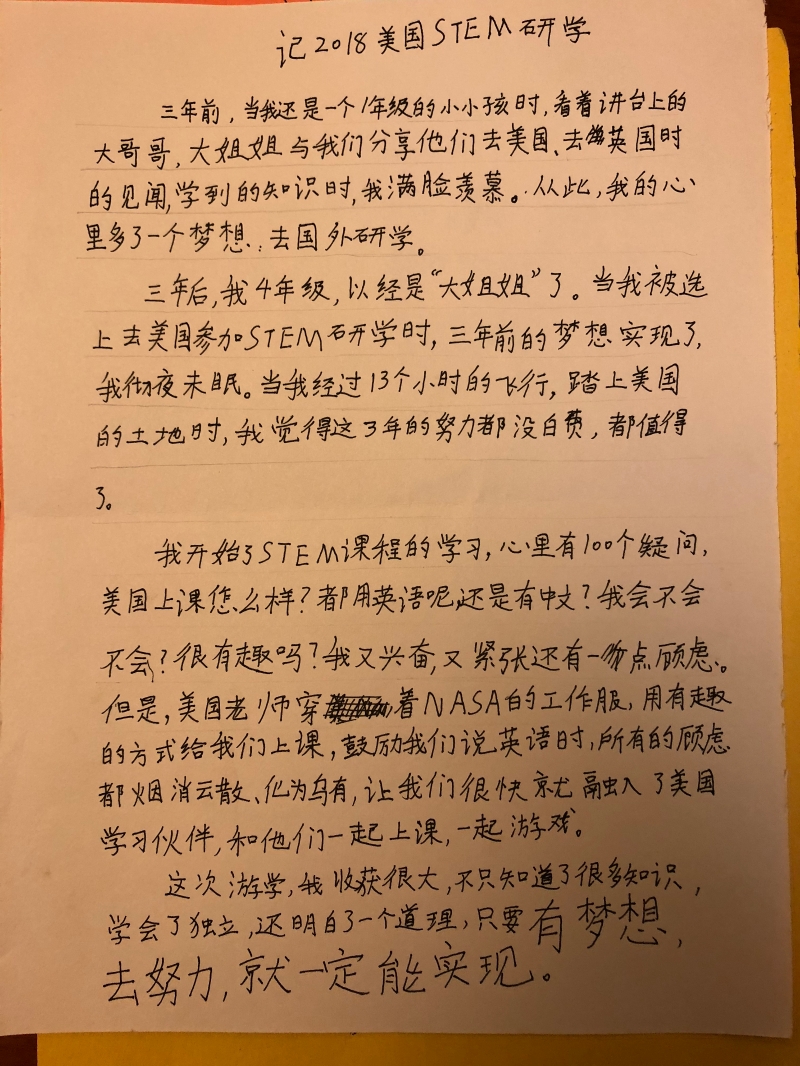 记2018美国STEM研学
三年前，当我还是一个1年级的小小孩时，看着讲台上的
大哥哥，大姐姐与我们分享他们去美国、去英国时
的见闻，学到的知识时，我满脸羡慕。从此，我的心
里多了一个梦想：去国外研学。
三年后，我4年级，以经是“大姐姐”了。当我被选
上去美国参加STEM研学时，三年前的梦想实现了，
我彻夜未眠。当我经过13个小时的飞行，踏上美国
的土地时，我觉得这3年的努力都没白费，都值得
了。
我开始了STEM课程的学习，心里有100个疑问，
美国上课怎么样？都用英语呢，还是有中文？我会不会
不会？很有趣吗？我又兴奋，又紧张还有一吻点顾虑。
但是，美国老师穿着NASA的工作服，用有趣
的方式给我们上课，鼓励我们说英语时，所有的顾虑
都烟消云散、化为乌有，让我们很快就融入了美国
学习伙伴，和他们一起上课，一起游戏。
这次游学，我收获很大，不只知道了很多知识，
学会了独立，还明白了一个道理，只要有梦想，
去努力，就一定能实现。